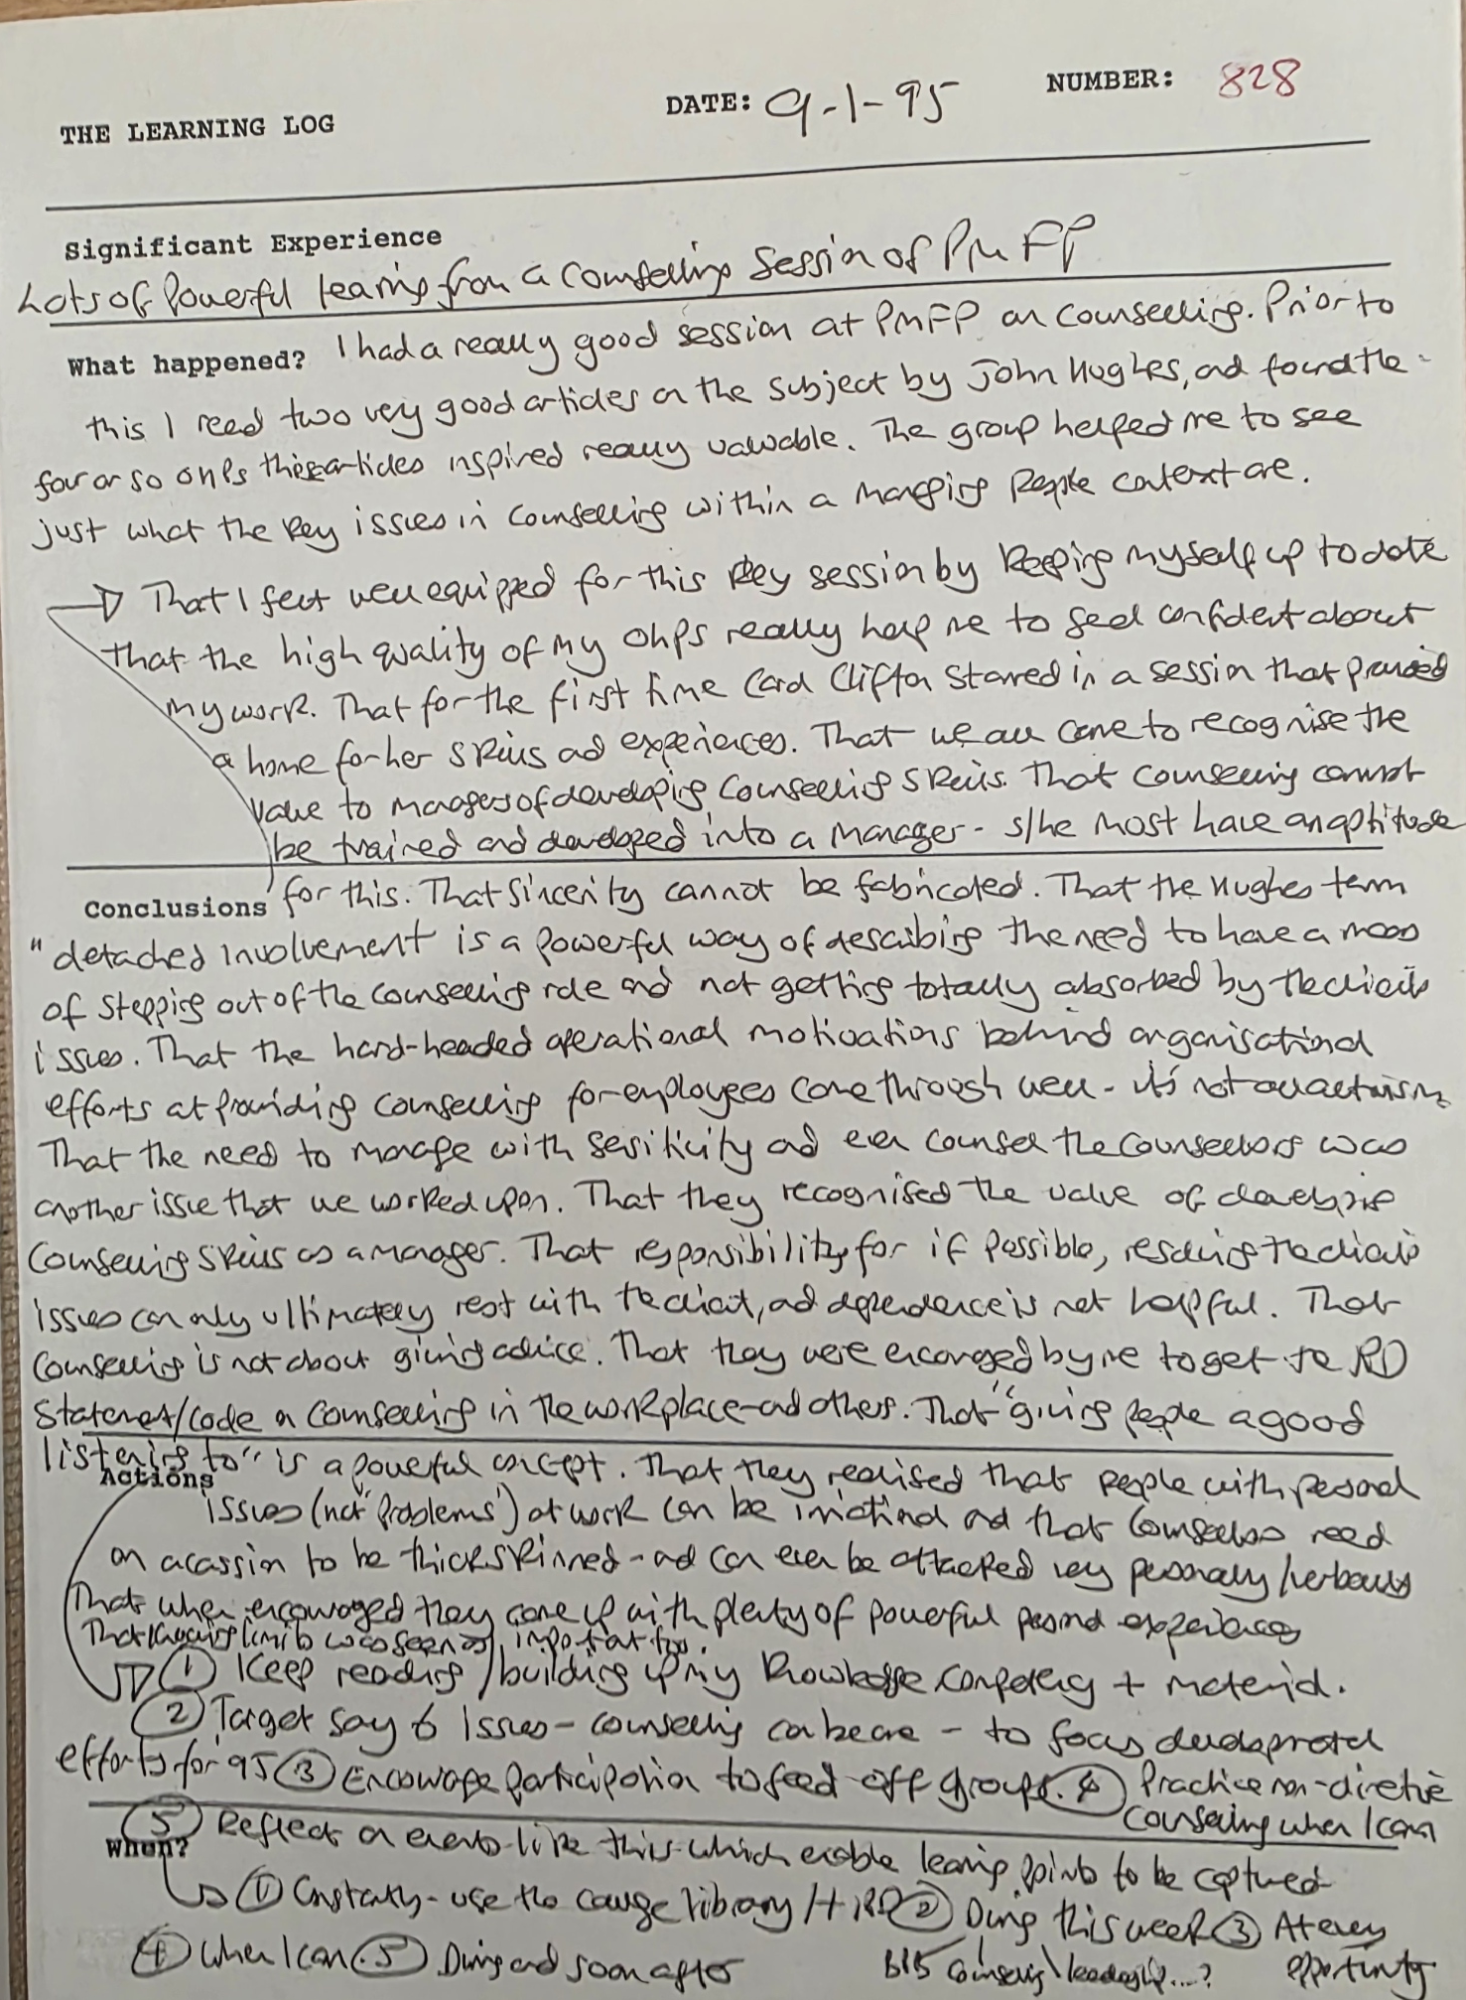 THE LEARNING LOG DATE: 9-1-95 NUMBER: 828
Significant Experience
Lots of Powerful learning from a Counselling Session of PMFP
What happened? I had a really good session at PMFP on Counselling. Prior to
this I read two very good articles on the subject by John Hughes, and found the
four or so OHPs these articles inspired really valuable. The group helped me to see
just what the key issues in Counselling within a Managing People context are.
That I felt well equipped for this key session by keeping myself up to date
That the high quality of my OHPs really help me to feel confident about
my work. That for the first time Carol Clifton Starred in a session that provided
a home for her skills and experiences. That we all came to recognise the
value to managers of developing Counselling Skills. That Counselling cannot
be trained and developed into a manager - s/he must have an aptitude
Conclusions for this. That Sincerity cannot be fabricated. That the Hughes term
"detached involvement is a powerful way of describing the need to have a
of stepping out of the counselling role and not getting totally absorbed by the clients
issues. That the hard-headed operational motivations behind organisational
efforts at providing counselling for employees come through well - it's not all altruism
That the need to manage with sensitivity and even counsel the counsellors was
another issue that we worked upon. That they recognised the value of developing
Counselling skills as a manager. That responsibility for if possible, resolving the clients
issues can only ultimately rest with the client, and dependence is not helpful. That
Counselling is not about giving advice. That they were encouraged by me to get the
Statement/Code on Counselling in the workplace - and others. That "giving people a good
listening to" is a powerful concept. That they realised that people with personal
Actions
issues (not 'problems') at work can be irrational and that Counsellors need
on occassion to be thick skinned - and can even be attacked very personally/verbally
That when encouraged they come up with plenty of powerful personal experiences
That knowing limits was seen as important too.
① Keep reading / building up my knowledge competency + material.
② Target say 6 Issues - counselling can be one - to focus developmental
efforts for 95 ③ Encourage participation to feed off groups. ④ Practice non-directive
Counselling when I can
⑤ Reflect on events like this which enable learning points to be captured
When?
① Constantly - use the college library / ② During this week ③ At every
opportunity
④ When I can. ⑤ During and soon after Counselling \ leadership...?